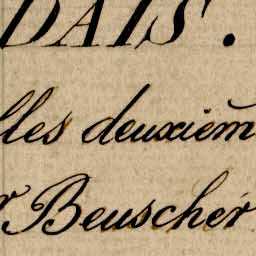 DAIS.
lles deuxiem̄
r Beuscher